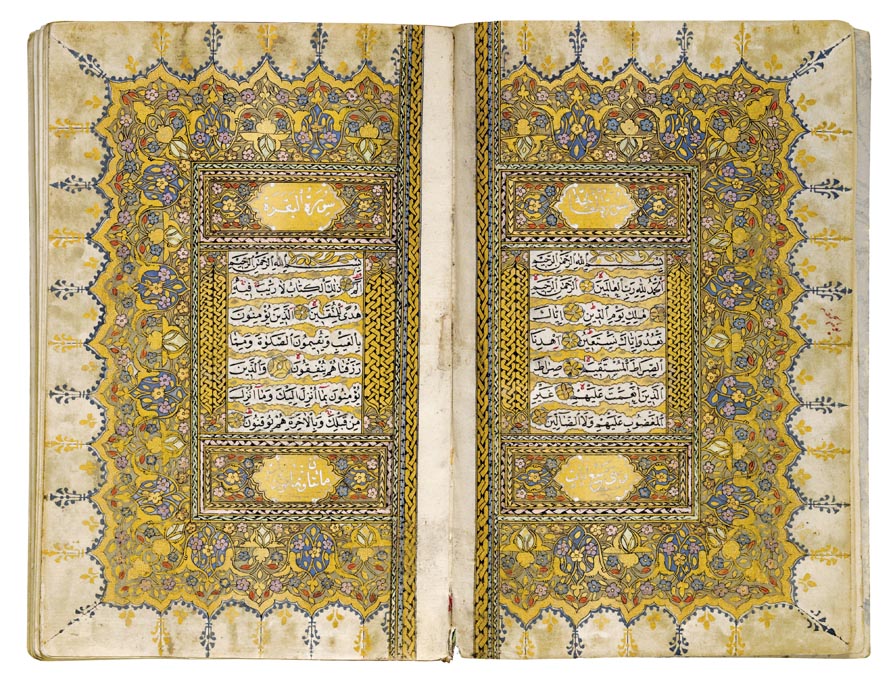 سورة فاتحة
بسم الله الرحمن الرحيم
الحمد لله رب العالمين الرحمن الرحيم
ملك يوم الدين اياك
نعبد واياك نستعين اهدنا
الصراط المستقيم صراط
الذين انعمت عليهم غير
المغضوب عليهم ولا الضالين
سورة البقرة
بسم الله الرحمن الرحيم
الم ذلك الكتاب لا ريب فيه
هدى للمتقين الذين يؤمنون
بالغيب ويقيمون الصلوة ومما
رزقناهم ينفقون والذين
يؤمنون بما انزل اليك وما انزل
من قبلك وبالاخرة هم يوقنون